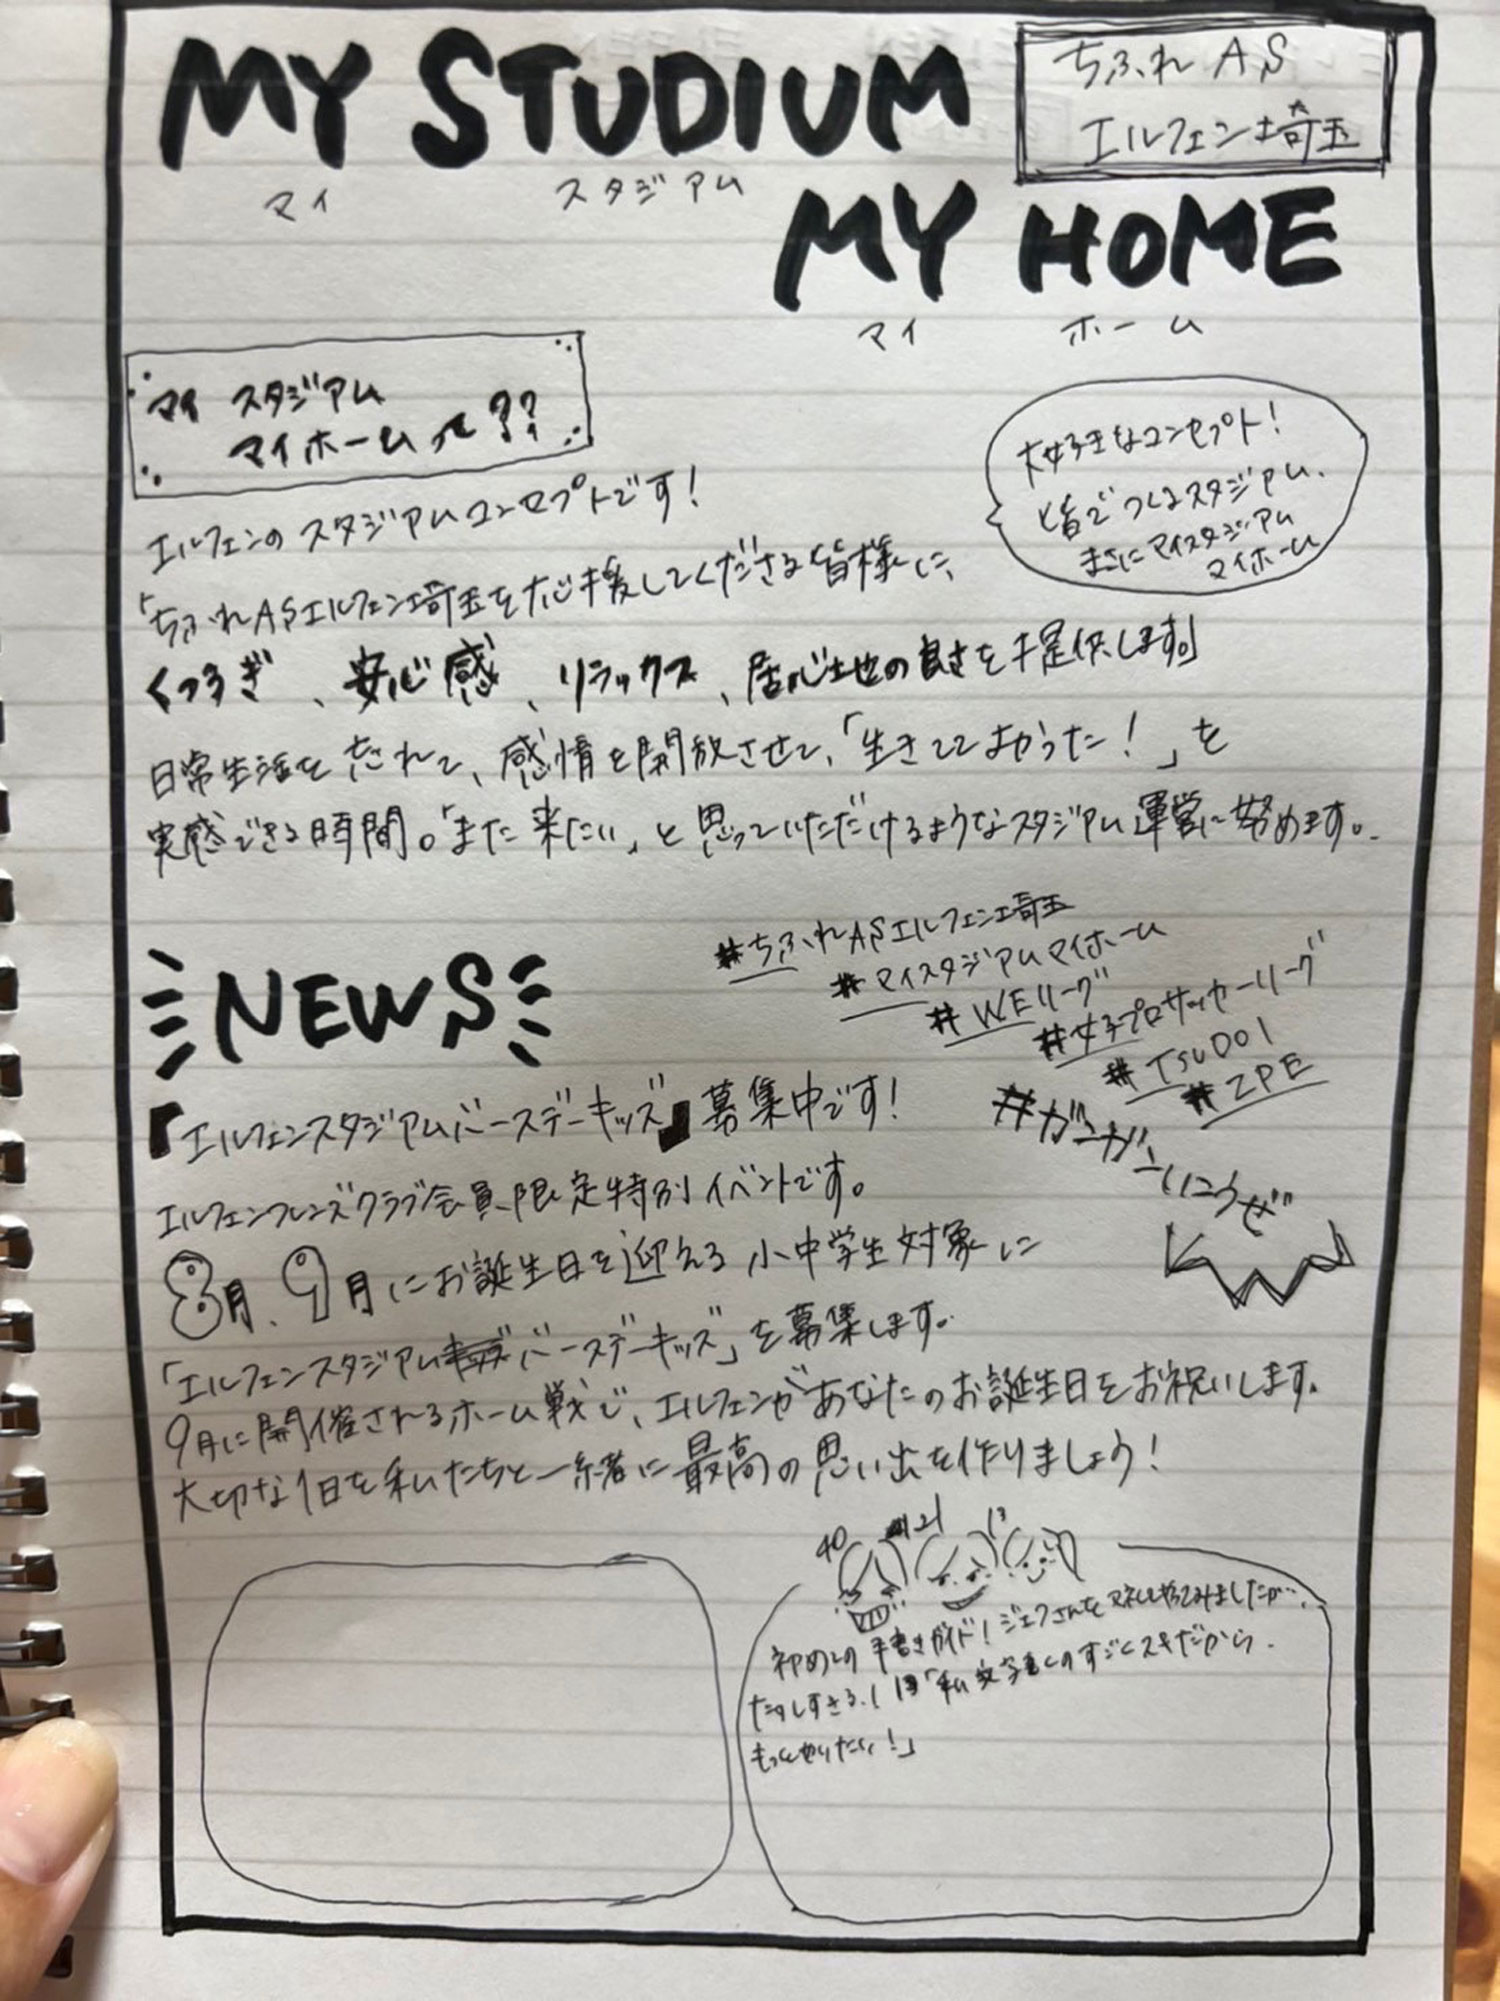 MY STUDIUM
マイ スタジアム
ちふれ AS
エルフェン埼玉
MY HOME
マイ ホーム
マイ スタジアム
マイホームって??
大好きなコンセプト!
皆でつくるスタジアム、
まさにマイスタジアム
マイホーム
エルフェンのスタジアムコンセプトです!
「ちふれASエルフェン埼玉を応援してくださる皆様に、
くつろぎ、安心感、リラックス、居心地の良さを提供します。」
日常生活を忘れて、感情を開放させて、「生きててよかった!」を
実感できる時間。「また来たい」と思っていただけるようなスタジアム運営に努めます。
#ちふれASエルフェン埼玉
#マイスタジアムマイホーム
#WEリーグ
#女子プロサッカーリーグ
#TSUDOI
#ZPE
#ガンガンいこうぜ
NEWS
『エルフェンスタジアムバースデーキッズ』募集中です!
エルフェンフレンズクラブ会員限定特別イベントです。
8月、9月にお誕生日を迎える小中学生対象に
「エルフェンスタジアムバースデーキッズ」を募集します。
9月に開催されるホーム戦で、エルフェンがあなたのお誕生日をお祝いします。
大切な1日を私たちと一緒に最高の思い出を作りましょう!
40 21 13
初めての手書きガイド!ジェフさんをマネしてやってみましたが…
たのしすぎる!13「私文字書くのすごくスキだから
もっとやりたい!」